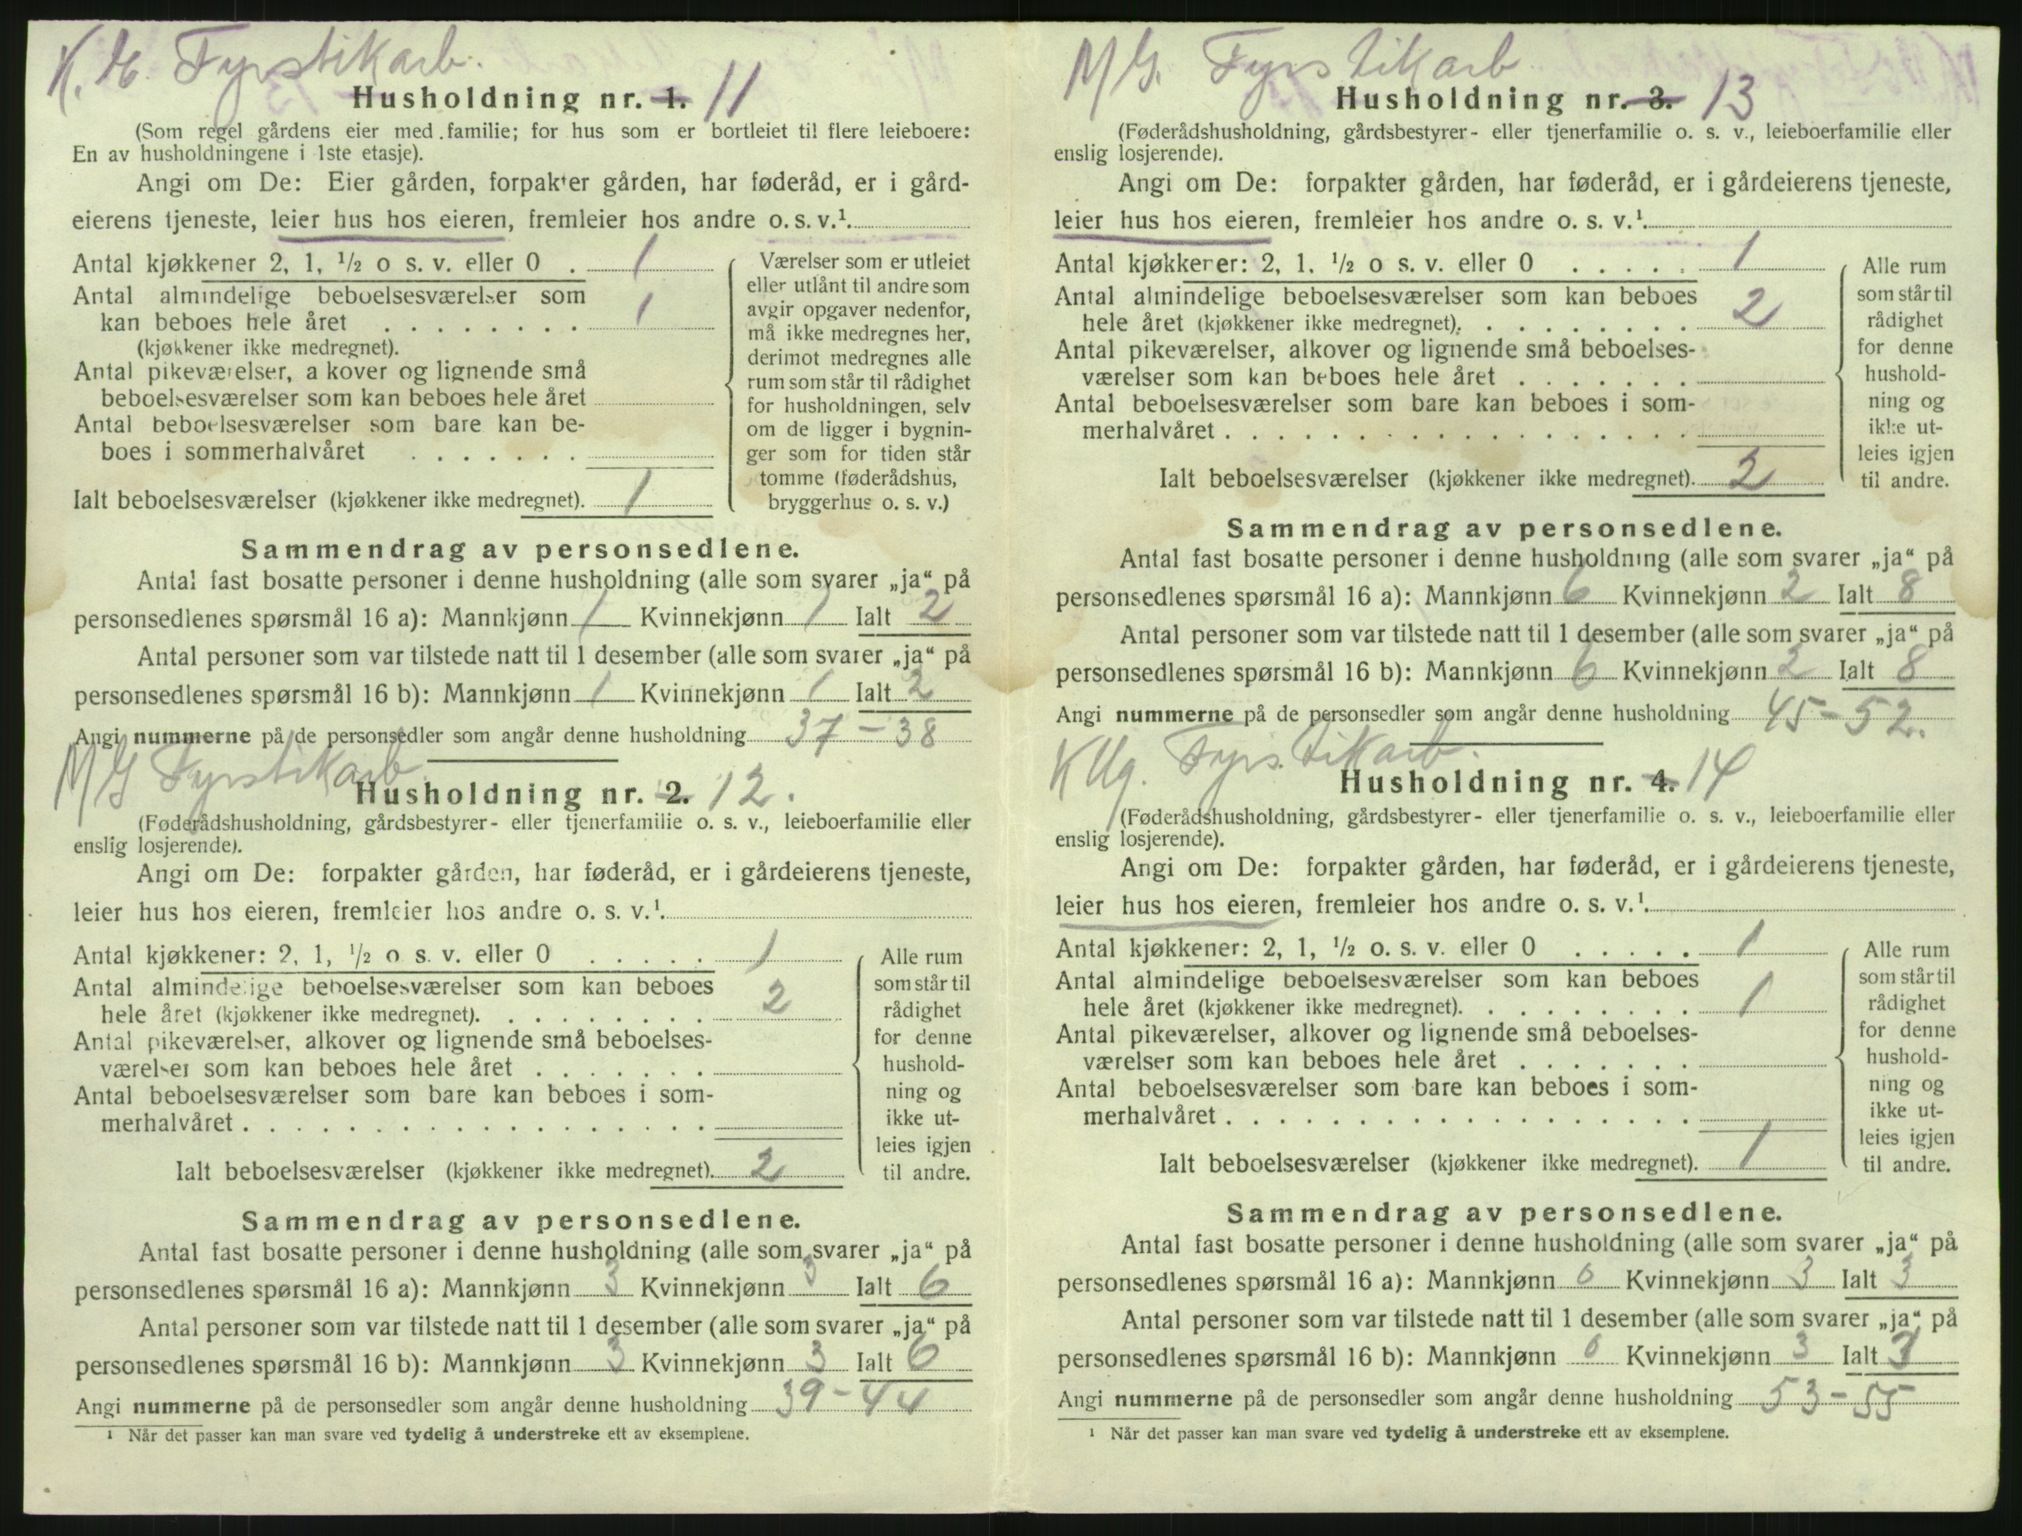 K. G. Fyrstikarb.
Husholdning nr. 1. 11
(Som regel gårdens eier med familie; for hus som er bortleiet til flere leieboere:
En av husholdningene i 1ste etasje).
Angi om De: Eier gården, forpakter gården, har føderåd, er i gård-
eierens tjeneste, leier hus hos eieren, fremleier hos andre o. s. v.¹.
Antal kjøkkener 2, 1, ½ o s. v. eller 0 . 1
Antal almindelige beboelsesværelser som
kan beboes hele året . . . . . . . . 1
(kjøkkener ikke medregnet).
Antal pikeværelser, a kover og lignende små
beboelsesværelser som kan beboes hele året
Antal beboelsesværelser som bare kan be-
boes i sommerhalvåret . . . . . . .
Ialt beboelsesværelser (kjøkkener ikke medregnet). 1
Værelser som er utleiet
eller utlånt til andre som
avgir opgaver nedenfor,
må ikke medregnes her,
derimot medregnes alle
rum som står til rådighet
for husholdningen, selv
om de ligger i bygnin-
ger som for tiden står
tomme (føderådshus,
bryggerhus o. s. v.)
Sammendrag av personsedlene.
Antal fast bosatte personer i denne husholdning (alle som svarer „ja“ på
personsedlenes spørsmål 16 a): Mannkjønn 1 Kvinnekjønn 1 Ialt 2
Antal personer som var tilstede natt til 1 desember (alle som svarer „ja“ på
personsedlenes spørsmål 16 b): Mannkjønn 1 Kvinnekjønn 1 Ialt 2
Angi nummerne på de personsedler som angår denne husholdning 37-38
M G Fyrstikarb.
Husholdning nr. 2. 12.
(Føderådshusholdning, gårdsbestyrer- eller tjenerfamilie o. s. v., leieboerfamilie eller
enslig losjerende).
Angi om De: forpakter gården, har føderåd, er i gårdeierens tjeneste,
leier hus hos eieren, fremleier hos andre o. s. v.¹.
Antal kjøkkener: 2, 1, ½ o s. v. eller 0 . . . . . 1
Antal almindelige beboelsesværelser som kan beboes
hele året (kjøkkener ikke medregnet). . . . . . . . . 2
Antal pikeværelser, alkover og lignende små beboelses-
værelser som kan beboes hele året . . . . . . .
Antal beboelsesværelser som bare kan beboes i som-
merhalvåret . . . . . . . . . . . . . . . . . .
Ialt beboelsesværelser (kjøkkener ikke medregnet). 2
Alle rum
som står til
rådighet
for denne
hushold-
ning og
ikke ut-
leies igjen
til andre.
Sammendrag av personsedlene.
Antal fast bosatte personer i denne husholdning (alle som svarer „ja“ på
personsedlenes spørsmål 16 a): Mannkjønn 3 Kvinnekjønn 3 Ialt 6
Antal personer som var tilstede natt til 1 desember (alle som svarer „ja“ på
personsedlenes spørsmål 16 b): Mannkjønn 3 Kvinnekjønn 3 Ialt 6
Angi nummerne på de personsedler som angår denne husholdning 39-44
¹ Når det passer kan man svare ved tydelig å understreke ett av eksemplene.
M G. Fyrstikarb
Husholdning nr. 3. 13
(Føderådshusholdning, gårdsbestyrer- eller tjenerfamilie o. s. v., leieboerfamilie eller
enslig losjerende).
Angi om De: forpakter gården, har føderåd, er i gårdeierens tjeneste,
leier hus hos eieren, fremleier hos andre o. s. v.¹.
Antal kjøkkener: 2, 1, ½ o s. v. eller 0 . . . . . 1
Antal almindelige beboelsesværelser som kan beboes
hele året (kjøkkener ikke medregnet). . . . . . . . . 2
Antal pikeværelser, alkover og lignende små beboelses-
værelser som kan beboes hele året . . . . . . .
Antal beboelsesværelser som bare kan beboes i som-
merhalvåret . . . . . . . . . . . . . . . . . .
Ialt beboelsesværelser (kjøkkener ikke medregnet). 2
Alle rum
som står til
rådighet
for denne
hushold-
ning og
ikke ut-
leies igjen
til andre.
Sammendrag av personsedlene.
Antal fast bosatte personer i denne husholdning (alle som svarer „ja“ på
personsedlenes spørsmål 16 a): Mannkjønn 6 Kvinnekjønn 2 Ialt 8
Antal personer som var tilstede natt til 1 desember (alle som svarer „ja“ på
personsedlenes spørsmål 16 b): Mannkjønn 6 Kvinnekjønn 2 Ialt 8
Angi nummerne på de personsedler som angår denne husholdning 45-52.
K Ug. Fyrstikarb.
Husholdning nr. 4. 14
(Føderådshusholdning, gårdsbestyrer- eller tjenerfamilie o. s. v., leieboerfamilie eller
enslig losjerende).
Angi om De: forpakter gården, har føderåd, er i gårdeierens tjeneste,
leier hus hos eieren, fremleier hos andre o. s. v.¹.
Antal kjøkkener: 2, 1, ½ o. s. v. eller 0 . . . . . 1
Antal almindelige beboelsesværelser som kan beboes
hele året (kjøkkener ikke medregnet). . . . . . . . . 1
Antal pikeværelser, alkover og lignende små beboelses-
værelser som kan beboes hele året . . . . . . .
Antal beboelsesværelser som bare kan beboes i som-
merhalvåret . . . . . . . . . . . . . . . . . .
Ialt beboelsesværelser (kjøkkener ikke medregnet). 1
Alle rum
som står til
rådighet
for denne
hushold-
ning og
ikke ut-
leies igjen
til andre.
Sammendrag av personsedlene.
Antal fast bosatte personer i denne husholdning (alle som svarer „ja“ på
personsedlenes spørsmål 16 a): Mannkjønn 0 Kvinnekjønn 3 Ialt 3
Antal personer som var tilstede natt til 1 desember (alle som svarer „ja“ på
personsedlenes spørsmål 16 b): Mannkjønn 0 Kvinnekjønn 3 Ialt 3
Angi nummerne på de personsedler som angår denne husholdning 53-55
¹ Når det passer kan man svare ved tydelig å understreke ett av eksemplene.